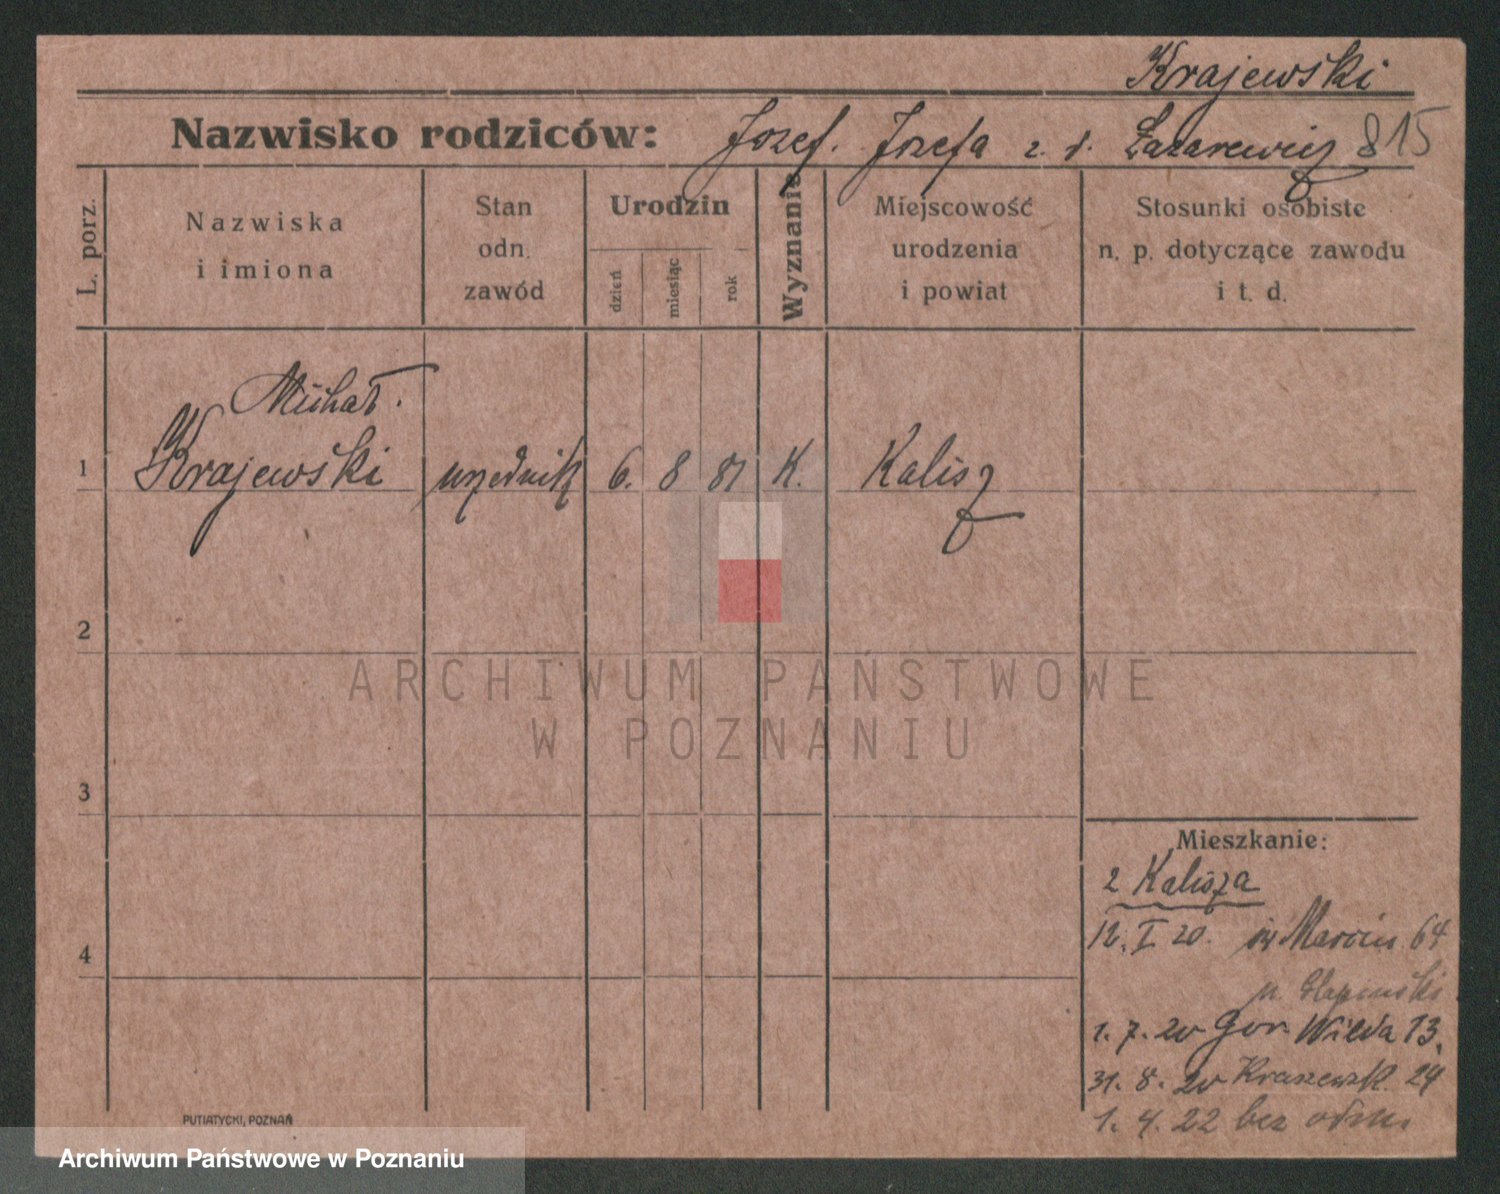 Krajewski
Nazwisko rodziców: Józef. Józefa z d. Łazarewicz 815
L. porz.
Nazwiska
i imiona
Stan
odn.
zawód
Urodzin
dzień
miesiąc
rok
Wyznanie
Miejscowość
urodzenia
i powiat
Stosunki osobiste
n. p. dotyczące zawodu
i t. d.
Michał.
1 Krajewski urzędnik 6. 8 81 K. Kalisz
2
ARCHIWUM PAŃSTWOWE
W POZNANIU
3
Mieszkanie:
z Kalisza
12. I 20. św Marcin 64
4
1. 7. 20 Gór. Wilda 13.
31. 8. 20 Kraszewsk. 24
1. 4. 22 bez
PUTIATYCKI, POZNAŃ
Archiwum Państwowe w Poznaniu